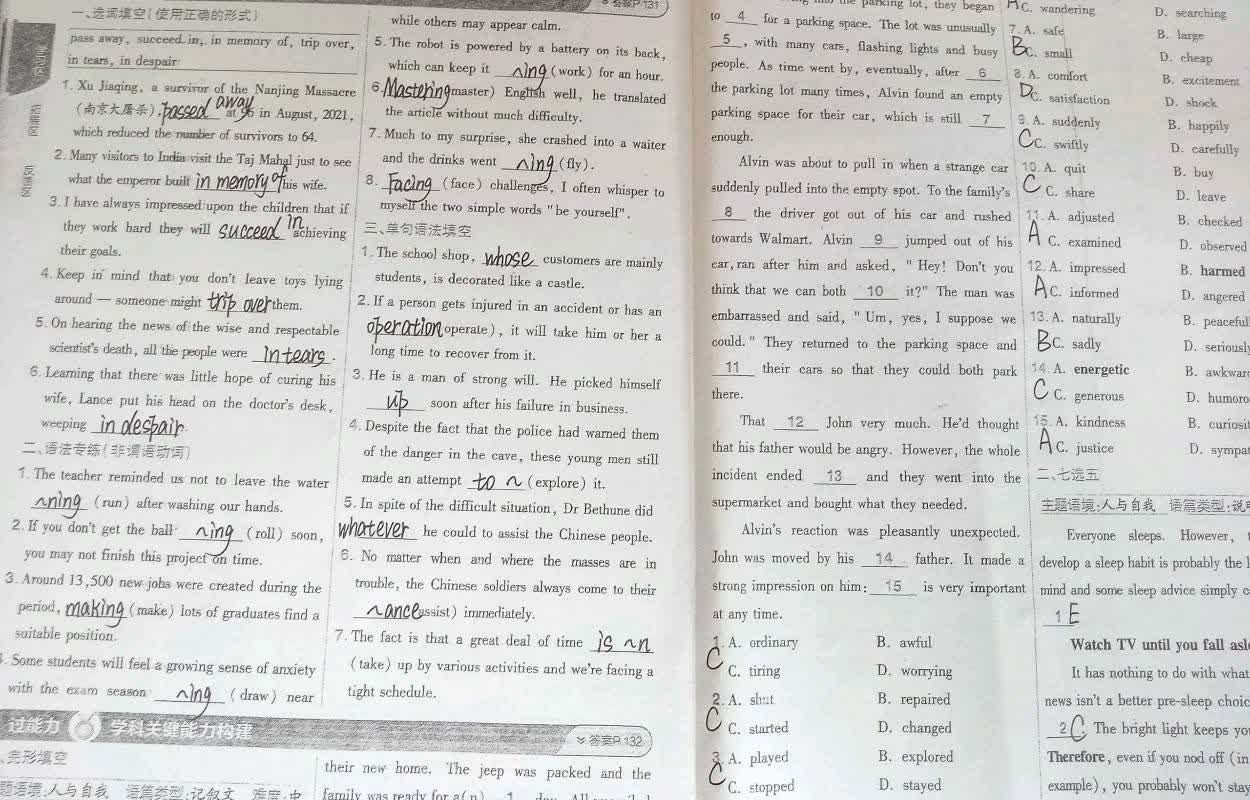 一、选词填空(使用正确的形式)
pass away, succeed in, in memory of, trip over,
in tears, in despair
1. Xu Jiaqing, a survivor of the Nanjing Massacre
(南京大屠杀), passed away at 96 in August, 2021,
which reduced the number of survivors to 64.
2. Many visitors to India visit the Taj Mahal just to see
what the emperor built in memory of his wife.
3. I have always impressed upon the children that if
they work hard they will succeed in achieving
their goals.
4. Keep in mind that you don't leave toys lying
around — someone might trip over them.
5. On hearing the news of the wise and respectable
scientist's death, all the people were in tears.
6. Learning that there was little hope of curing his
wife, Lance put his head on the doctor's desk,
weeping in despair.
二、语法专练(非谓语动词)
1. The teacher reminded us not to leave the water
~ning (run) after washing our hands.
2. If you don't get the ball ~ing (roll) soon,
you may not finish this project on time.
3. Around 13,500 new jobs were created during the
period, making (make) lots of graduates find a
suitable position.
4. Some students will feel a growing sense of anxiety
with the exam season ~ing (draw) near
过能力 6 学科关键能力构建
答案P.132
、完形填空
题语境:人与自我 语篇类型:记叙文 难度:中
while others may appear calm.
5. The robot is powered by a battery on its back,
which can keep it ~ing (work) for an hour.
6. Mastering (master) English well, he translated
the article without much difficulty.
7. Much to my surprise, she crashed into a waiter
and the drinks went ~ing (fly).
8. Facing (face) challenges, I often whisper to
myself the two simple words "be yourself".
三、单句语法填空
1. The school shop, whose customers are mainly
students, is decorated like a castle.
2. If a person gets injured in an accident or has an
operation (operate), it will take him or her a
long time to recover from it.
3. He is a man of strong will. He picked himself
up soon after his failure in business.
4. Despite the fact that the police had warned them
of the danger in the cave, these young men still
made an attempt to ~ (explore) it.
5. In spite of the difficult situation, Dr Bethune did
whatever he could to assist the Chinese people.
6. No matter when and where the masses are in
trouble, the Chinese soldiers always come to their
~ance (assist) immediately.
7. The fact is that a great deal of time is ~n
(take) up by various activities and we're facing a
tight schedule.
their new home. The jeep was packed and the
family was ready for a(n) 1
答案P.131
the parking lot, they began
to 4 for a parking space. The lot was unusually
5, with many cars, flashing lights and busy
people. As time went by, eventually, after 6
the parking lot many times, Alvin found an empty
parking space for their car, which is still 7
enough.
Alvin was about to pull in when a strange car
suddenly pulled into the empty spot. To the family's
8 the driver got out of his car and rushed
towards Walmart. Alvin 9 jumped out of his
car, ran after him and asked, "Hey! Don't you
think that we can both 10 it?" The man was
embarrassed and said, "Um, yes, I suppose we
could." They returned to the parking space and
11 their cars so that they could both park
there.
That 12 John very much. He'd thought
that his father would be angry. However, the whole
incident ended 13 and they went into the
supermarket and bought what they needed.
Alvin's reaction was pleasantly unexpected.
John was moved by his 14 father. It made a
strong impression on him: 15 is very important
at any time.
1. A. ordinary B. awful
C C. tiring D. worrying
2. A. shut B. repaired
C C. started D. changed
3. A. played B. explored
C C. stopped D. stayed
C. wandering D. searching
7. A. safe B. large
B C. small D. cheap
8. A. comfort B. excitement
D C. satisfaction D. shock
9. A. suddenly B. happily
C C. swiftly D. carefully
10. A. quit B. buy
C C. share D. leave
11. A. adjusted B. checked
A C. examined D. observed
12. A. impressed B. harmed
A C. informed D. angered
13. A. naturally B. peaceful
B C. sadly D. seriously
14. A. energetic B. awkward
C C. generous D. humoro
15. A. kindness B. curiosit
A C. justice D. sympat
二、七选五
主题语境:人与自我 语篇类型:说明
Everyone sleeps. However,
develop a sleep habit is probably the
mind and some sleep advice simply
1 E
Watch TV until you fall asle
It has nothing to do with what
news isn't a better pre-sleep choic
2 C. The bright light keeps yo
Therefore, even if you nod off (in
example), you probably won't stay